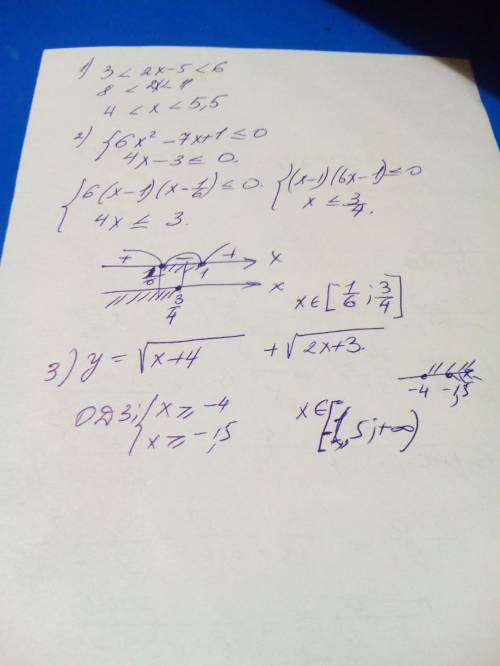 1) 3 < 2x-5 < 6
8 < 2x < 11
4 < x < 5,5
2) { 6x² - 7x + 1 ≤ 0
4x - 3 ≤ 0.
{ 6(x-1)(x-1/6) ≤ 0. { (x-1)(6x-1) ≤ 0
4x ≤ 3. x ≤ 3/4.
+ - + x
1/6 1 x
3/4 x ∈ [1/6; 3/4]
3) y = √x+4 + √2x+3.
-4 -1,5
ОДЗ: { x ≥ -4 x ∈ [-1,5; +∞)
x ≥ -1,5